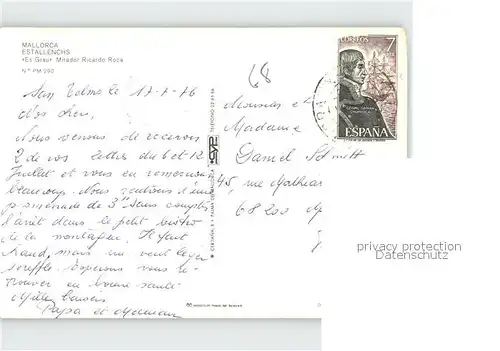 MALLORCA
ESTALLENCHS
«Es Grau» Mirador Ricardo Roca
N.° PM-390
San Telmo le 17-7-76
Nous venons de recevoir
2 de vos lettres du 6 et 12
Juillet et vous en remercions
beaucoup. Nous rentions d'une
promenade de 3 sans compter
l'arrêt dans le petit bistro
de la montagne. Il fait
chaud, mais un vent léger
souffle. Espérons vous re-
trouver en bonne santé
Milles baisers
Papa et Maman
68
Monsieur et
Madame
Daniel
45, rue
68200
CORREOS
7
ESPAÑA
privacy protection
Datenschutz